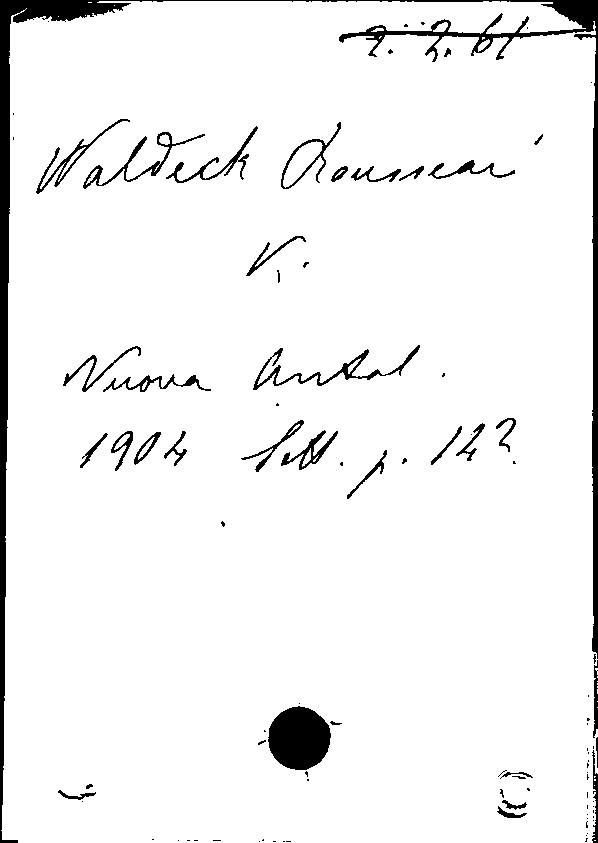 2. 2. 61
Waldeck Rousseau
V.
Nuova Antol.
1904 Sett. p. 142